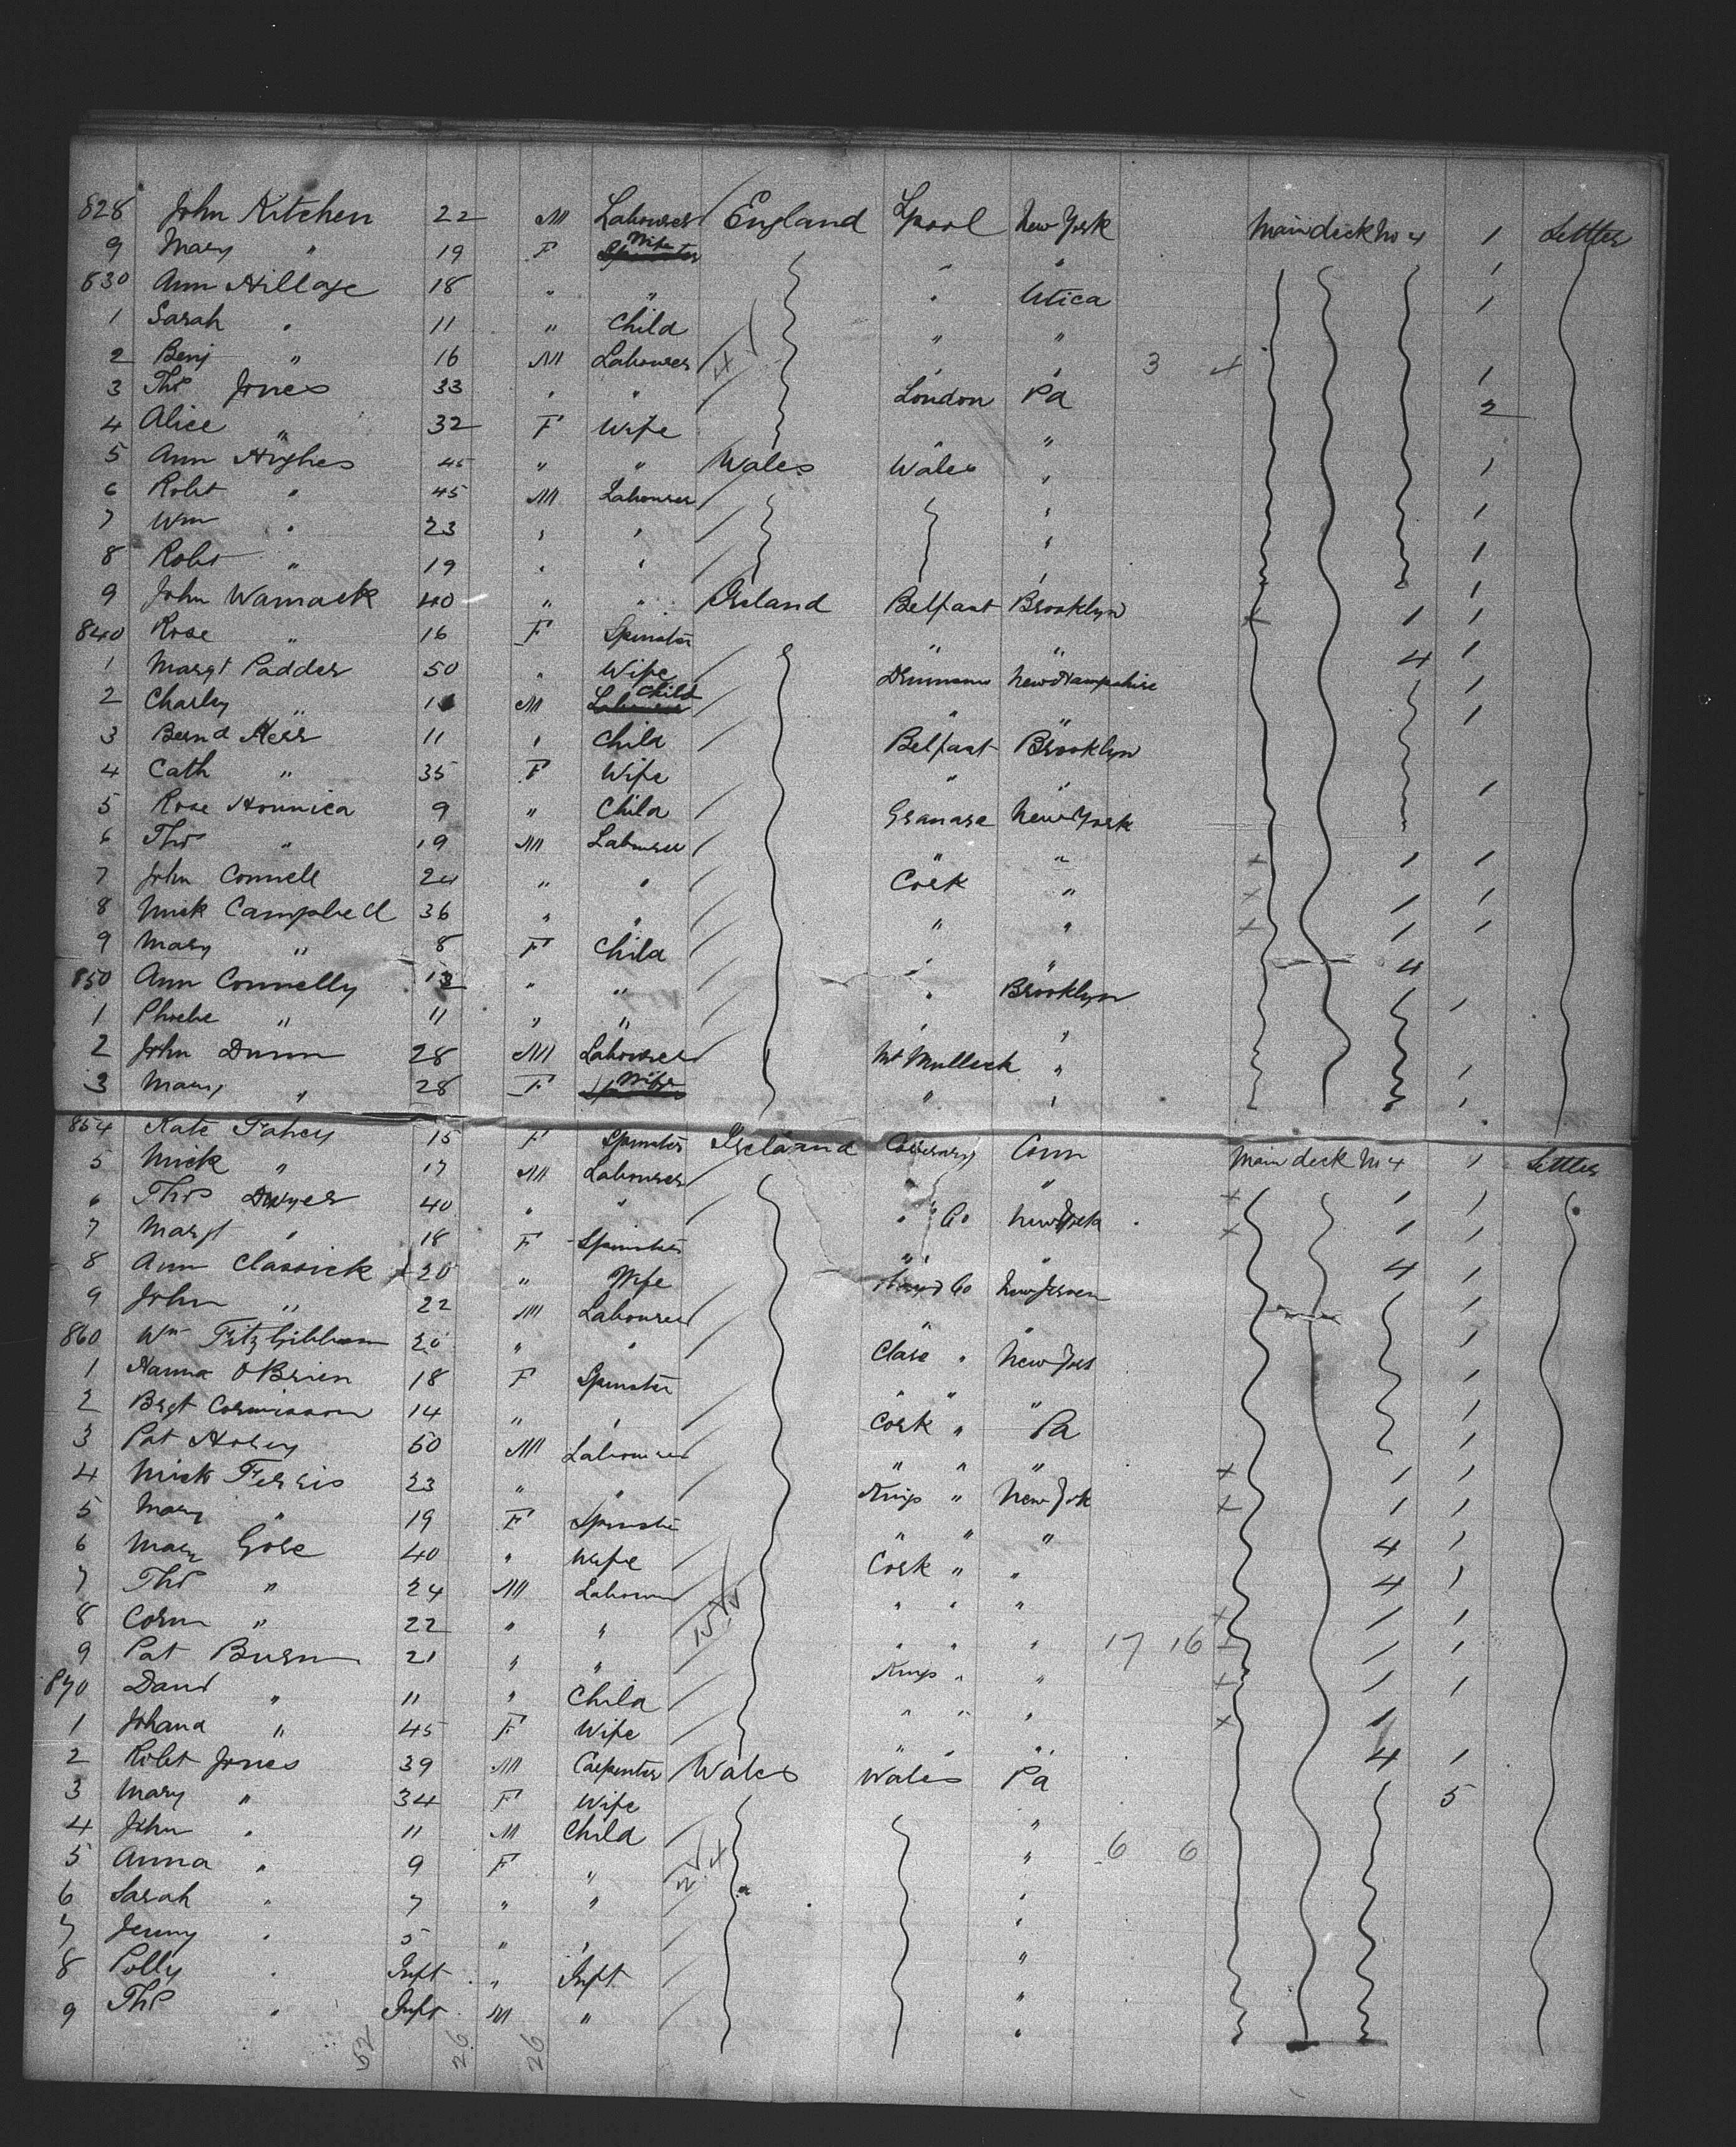 828 John Kitchen 22 M Labourer England Lpool New York Main deck No 4 1 Settler
9 Mary " 19 F Wife " " 1
830 Ann Hillage 18 " " " Utica 1
1 Sarah " 11 " Child " "
2 Benj " 16 M Labourer " " 3 1
3 Thos Jones 33 " " London Pa 2
4 Alice " 32 F Wife " "
5 Ann Hughes 45 " " Wales Wales " 1
6 Robt " 45 M Labourer " 1
7 Wm " 23 " " " 1
8 Robt " 19 " " " 1
9 John Wamack 40 " " Ireland Belfast Brooklyn + 1 1
840 Rose " 16 F Spinster " " 4 1
1 Margt Padder 50 " Wife New Hampshire 1
2 Charley " M Child " " 1
3 Bernd Kerr 11 " Child Belfast Brooklyn
4 Cath " 35 F Wife " " 1
5 Rose 9 " Child New York
6 Thos " 19 M Labourer " " + 1 1
7 John Connell 24 " " Cork " + 1 1
8 Mick Campbell 36 " " " " + 1 1
9 Mary " 8 F Child " " 4
850 Ann Connelly " " " Brooklyn 1
1 Phoebe " 11 " " " "
2 John Dunn 28 M Labourer Mt Mulleck " 1
3 Mary " 28 F Wife " " 1
854 Kate Fahey 15 F Spinster Ireland Conn Main deck No 4 1 Settler
5 Mick " 17 M Labourer " " + 1 1
6 Thos Dwyer 40 " " " Co New York + 1 1
7 Margt " 18 F Spinster " " 4 1
8 Ann Classick 20 " Wife Co New Jersey 1
9 John " 22 M Labourer " " 1
860 Wm FitzGibbon 20 " " Clare " New York 1
1 Hanna OBrien 18 F Spinster " " " 1
2 Brgt 14 " " Cork " Pa 1
3 Pat 60 M Labourer " " " + 1 1
4 Mick Ferris 23 " " Kings " New York + 1 1
5 Mary " 19 F Spinster " " " 4 1
6 Mary Gore 40 " Wife Cork " " 4 1
7 Thos " 24 M Labourer " " " + 1 1
8 Corn " 22 " " " " " 17 16 + 1 1
9 Pat Burn 21 " " Kings " " + 1 1
870 Davd " 11 " Child " " " + 1
1 Johana " 45 F Wife " " " 4 1
2 Robt Jones 39 M Carpenter Wales Wales Pa 5
3 Mary " 34 F Wife "
4 John " 11 M Child " 6 6
5 Anna " 9 F " "
6 Sarah " 7 " " "
7 Jenny " 5 " " "
8 Polly " Inft " Inft "
9 Thos " Inft M " "
52 26 26